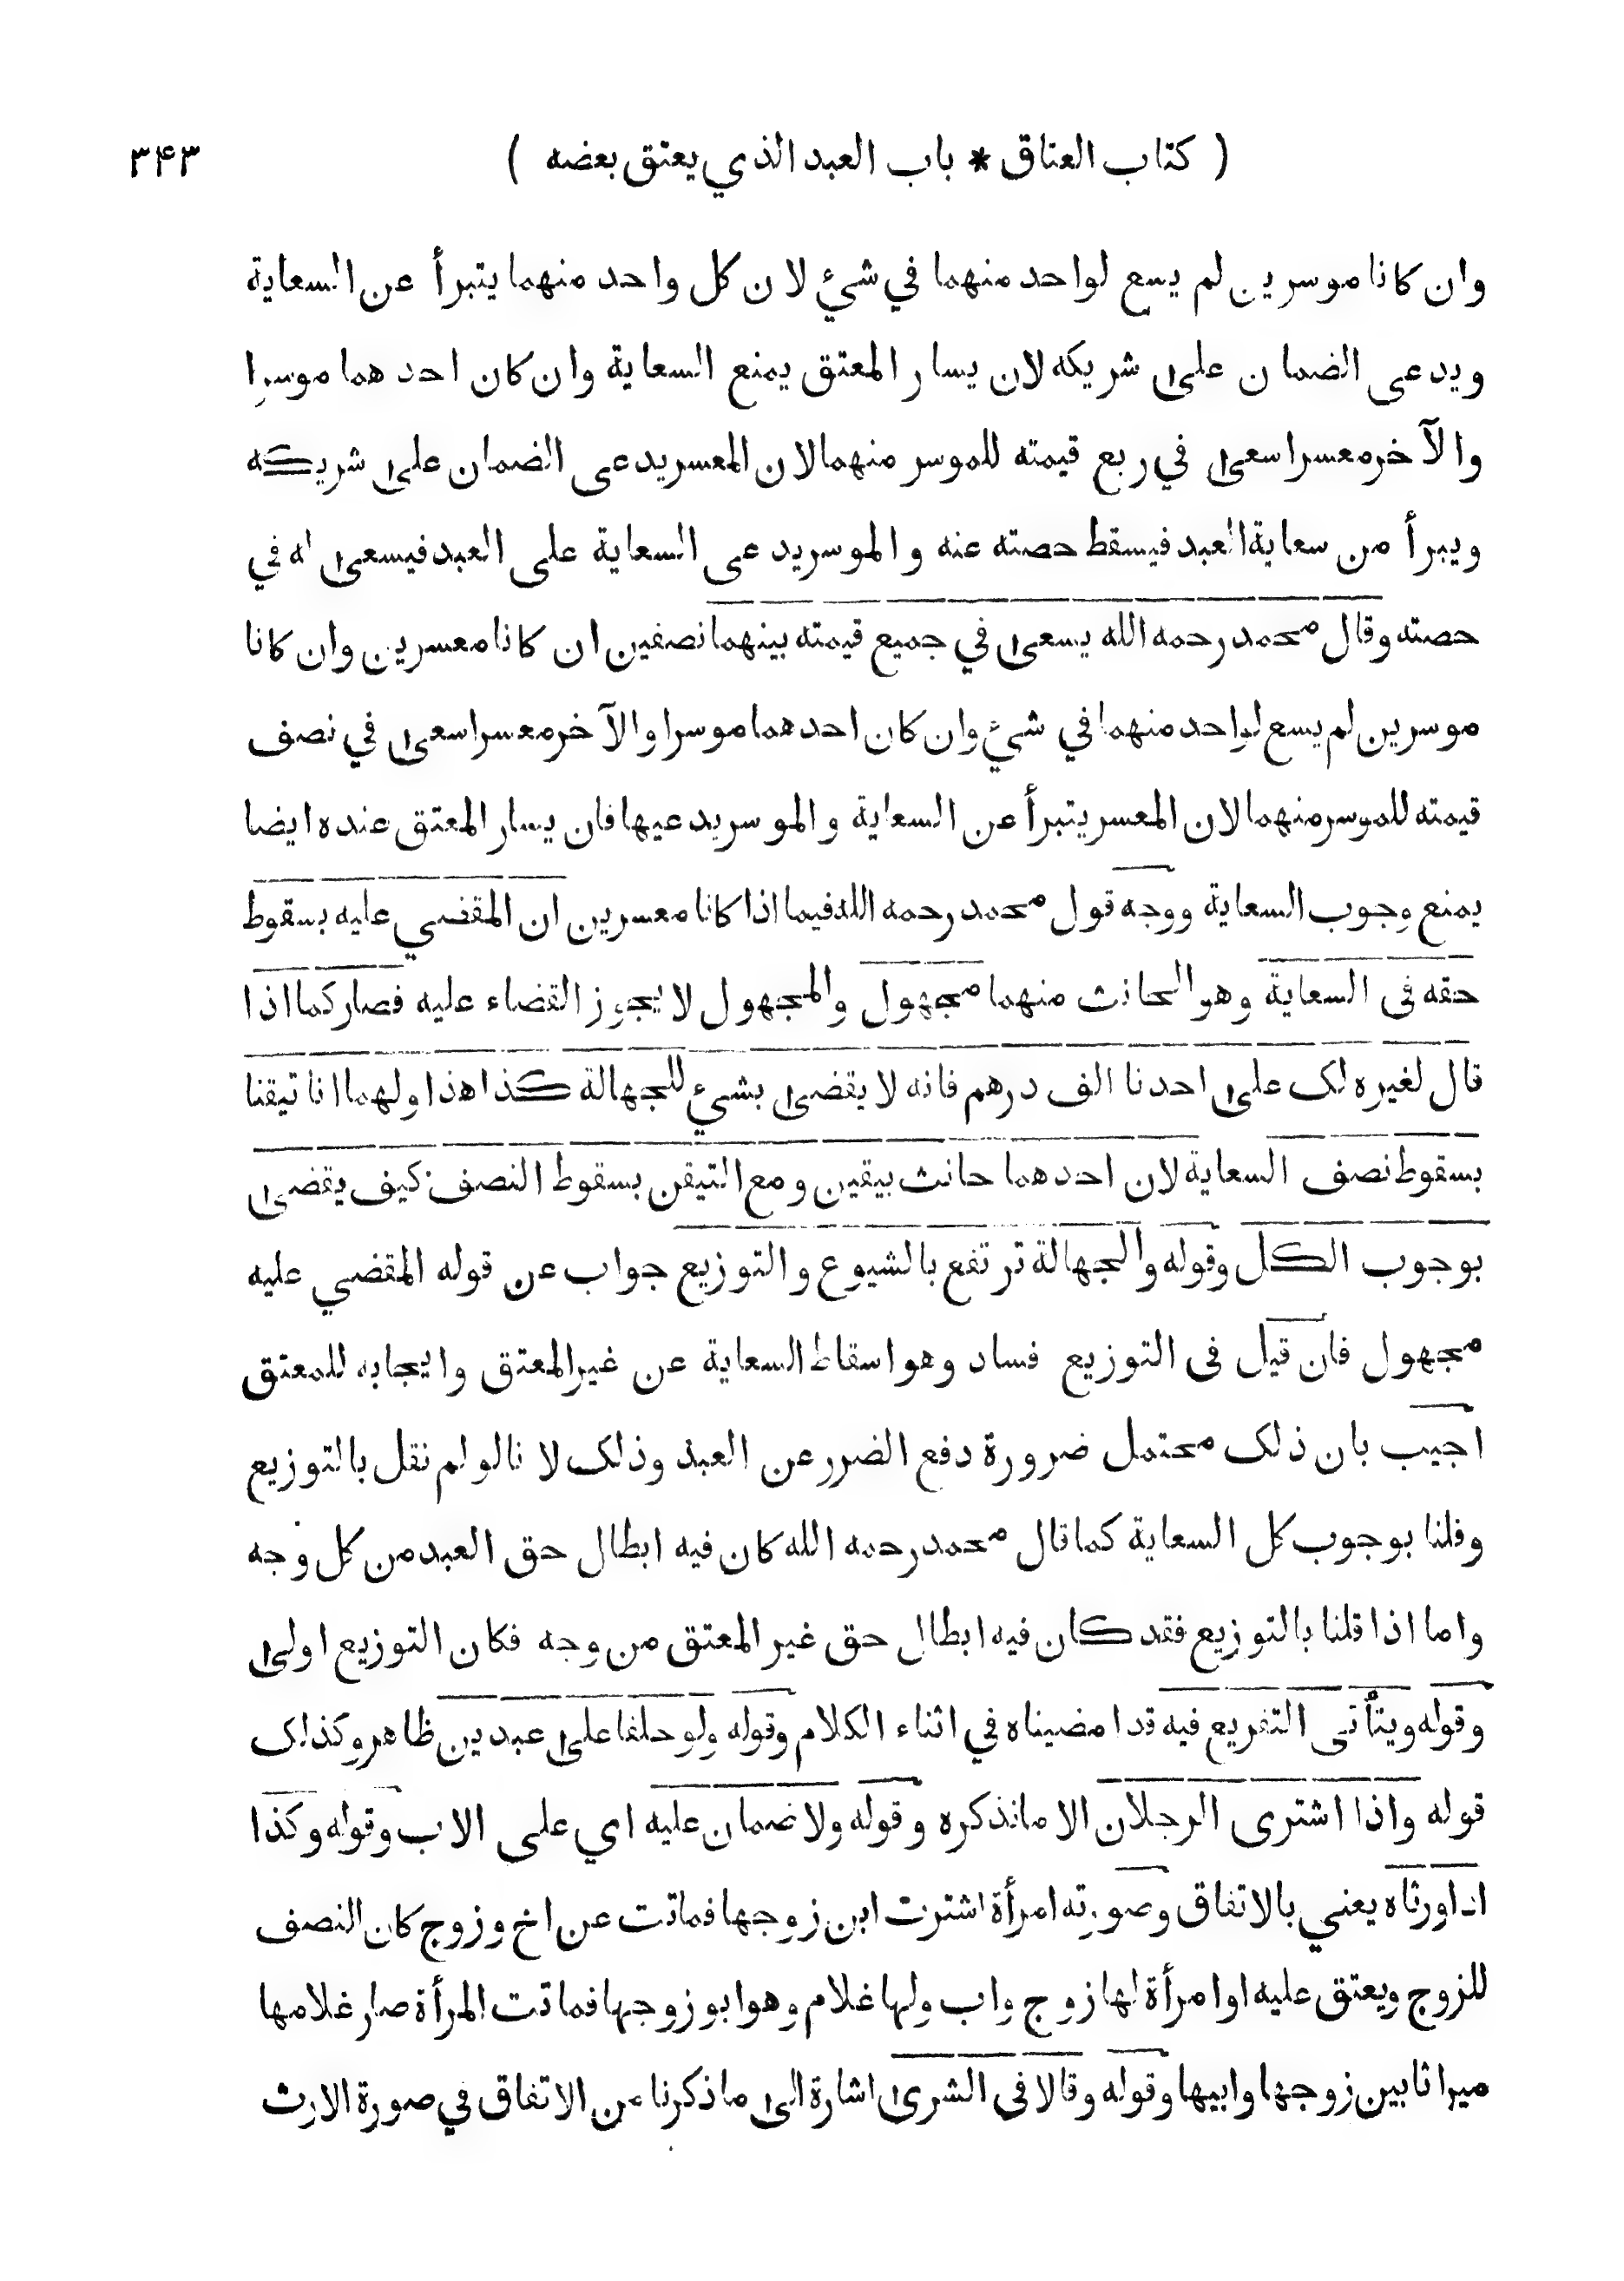 ( كتاب العتاق * باب العبد الذي يعتق بعضه ) ٣٤٣
وان كانا موسرين لم يسع لواحد منهما في شيء لان كل واحد منهما يتبرأ عن السعاية
ويدعى الضمان على شريكه لان يسار المعتق يمنع السعاية وان كان احدهما موسرا
والآخر معسرا سعى في ربع قيمته للموسر منهما لان المعسر يدعى الضمان على شريكه
ويبرأ من سعاية العبد فيسقط حصته عنه والموسر يدعى السعاية على العبد فيسعى له في
حصته وقال محمد رحمه الله يسعى في جميع قيمته بينهما نصفين ان كانا معسرين وان كانا
موسرين لم يسع لواحد منهما في شيء وان كان احدهما موسرا والآخر معسرا سعى في نصف
قيمته للموسر منهما لان المعسر يتبرأ عن السعاية والموسر يدعيها فان يسار المعتق عنده ايضا
يمنع وجوب السعاية ووجه قول محمد رحمه الله فيما اذا كانا معسرين ان المقضي عليه بسقوط
حقه فى السعاية وهو الحانث منهما مجهول والمجهول لا يجوز القضاء عليه فصار كما اذا
قال لغيره لك على احدنا الف درهم فانه لا يقضى بشيء للجهالة كذا هذا ولهما انا تيقنا
بسقوط نصف السعاية لان احدهما حانث بيقين ومع التيقن بسقوط النصف كيف يقضى
بوجوب الكل وقوله والجهالة ترتفع بالشيوع والتوزيع جواب عن قوله المقضي عليه
مجهول فان قيل فى التوزيع فساد وهو اسقاط السعاية عن غير المعتق وايجابه للمعتق
اجيب بان ذلك محتمل ضرورة دفع الضرر عن العبد وذلك لانا لو لم نقل بالتوزيع
وقلنا بوجوب كل السعاية كما قال محمد رحمه الله كان فيه ابطال حق العبد من كل وجه
واما اذا قلنا بالتوزيع فقد كان فيه ابطال حق غير المعتق من وجه فكان التوزيع اولى
وقوله ويتأتى التفريع فيه قد امضيناه في اثناء الكلام وقوله ولو حلفا على عبدين ظاهر وكذلك
قوله واذا اشترى الرجلان الا ما نذكره وقوله ولا ضمان عليه اي على الاب وقوله وكذا
اذا ورثاه يعني بالاتفاق وصورته امرأة اشترت ابن زوجها فماتت عن اخ وزوج كان النصف
للزوج ويعتق عليه او امرأة لها زوج واب ولها غلام وهو ابو زوجها فماتت المرأة صار غلامها
ميراثا بين زوجها وابيها وقوله وقالا فى الشرى اشارة الى ما ذكرنا من الاتفاق في صورة الارث